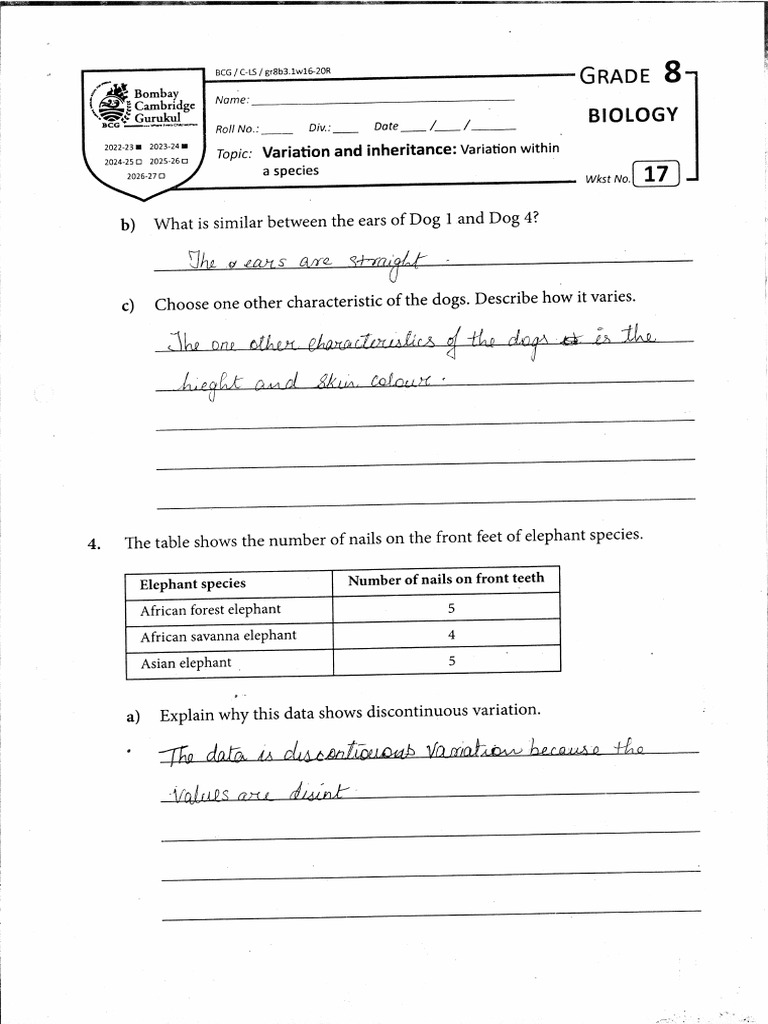 BCG / C-LS / gr8b3.1w16-20R
GRADE 8
Bombay
Cambridge
Gurukul
BCG
Name:
BIOLOGY
Roll No.: Div.: Date / /
2022-23 ■ 2023-24 ■
2024-25 □ 2025-26 □
2026-27 □
Topic: Variation and inheritance: Variation within
a species
Wkst No. 17
b) What is similar between the ears of Dog 1 and Dog 4?
The ears are straight.
c) Choose one other characteristic of the dogs. Describe how it varies.
The one other characteristics of the dogs is the
hieght and skin colour.
4. The table shows the number of nails on the front feet of elephant species.
Elephant species Number of nails on front teeth
African forest elephant 5
African savanna elephant 4
Asian elephant 5
a) Explain why this data shows discontinuous variation.
The data is discontiouous variation because the
values are disint